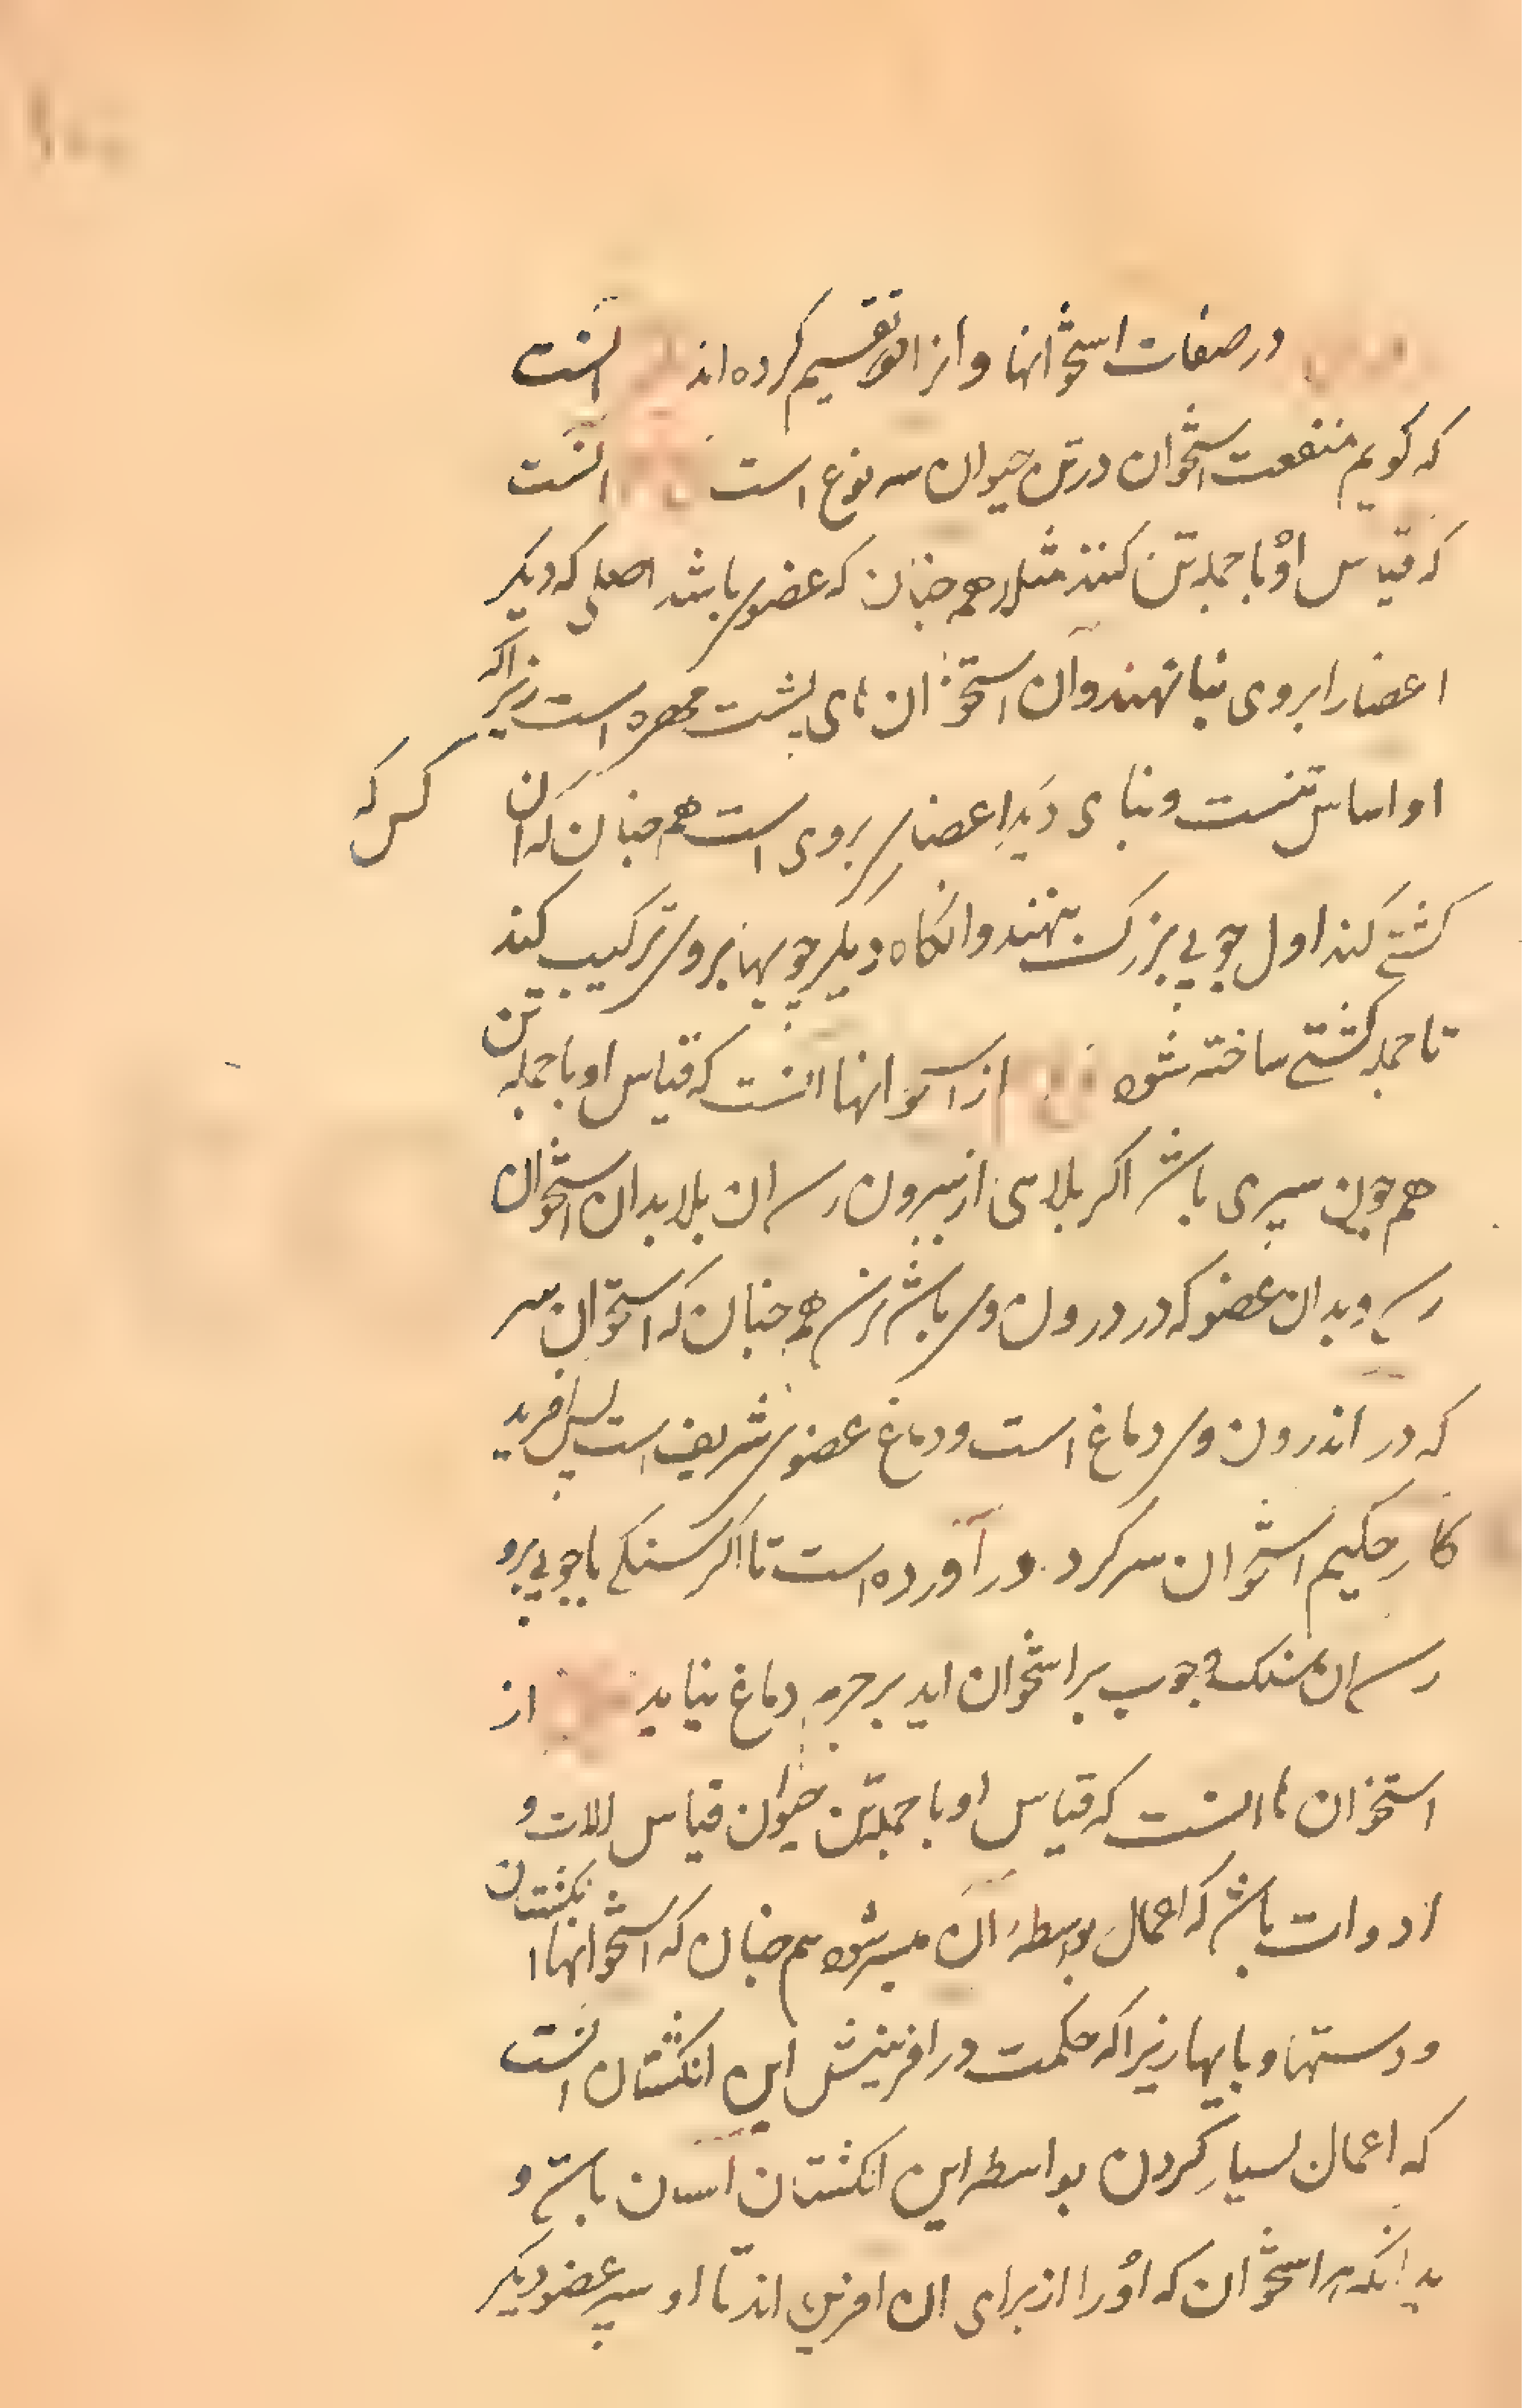 در صفات استخوانها و از انواع تقسیم کرده اند انست
که کویم منفعت استخوان در تن حیوان سه نوع است انست
که قیاس او با جمله تن کنند مثلا همچنان که عضوی باشد اصلی که دیکر
اعضا را بروی بنا نهند و آن استخوان های پشت مهره است زیرا که
او اساس تنست و بنای دیکر اعضا بروی است هم جنان که ان کس که
کشتی کند اول جوبی بزرک بنهند وانکاه دیکر جوبها بروی ترکیب کند
تا جمله کشتی ساخته شود از استخوانها انست که قیاس او با جمله تن
هم جون سپری باشد اکر بلای از بیرون رسد ان بلا بدان استخوان
رسد و بدان عضو که در درون وی باشد نرسد هم جنان که استخوان سر
که در اندرون وی دماغ است و دماغ عضوی شریف است پس افرید
کار حکیم استخوان سر کرد در آورده است تا اکر سنکی یا جوبی برو
رسد ان سنک و جوب بر استخوان اید بر جرم دماغ نیاید از
استخوان ها انست که قیاس او با جمله تن حیوان قیاس الات و
ادوات باشد که اعمال بواسطهٔ آن میسر شود هم جنان که استخوانها انکشتان
و دستها و پایها زیرا که حکمت در افرینش این انکشتان انست
که اعمال بسیار کردن بواسطه این انکشتان آسان باشد و
بدانکه هر استخوان که او را از برای ان افریده اند تا او سپر عضو دیکر